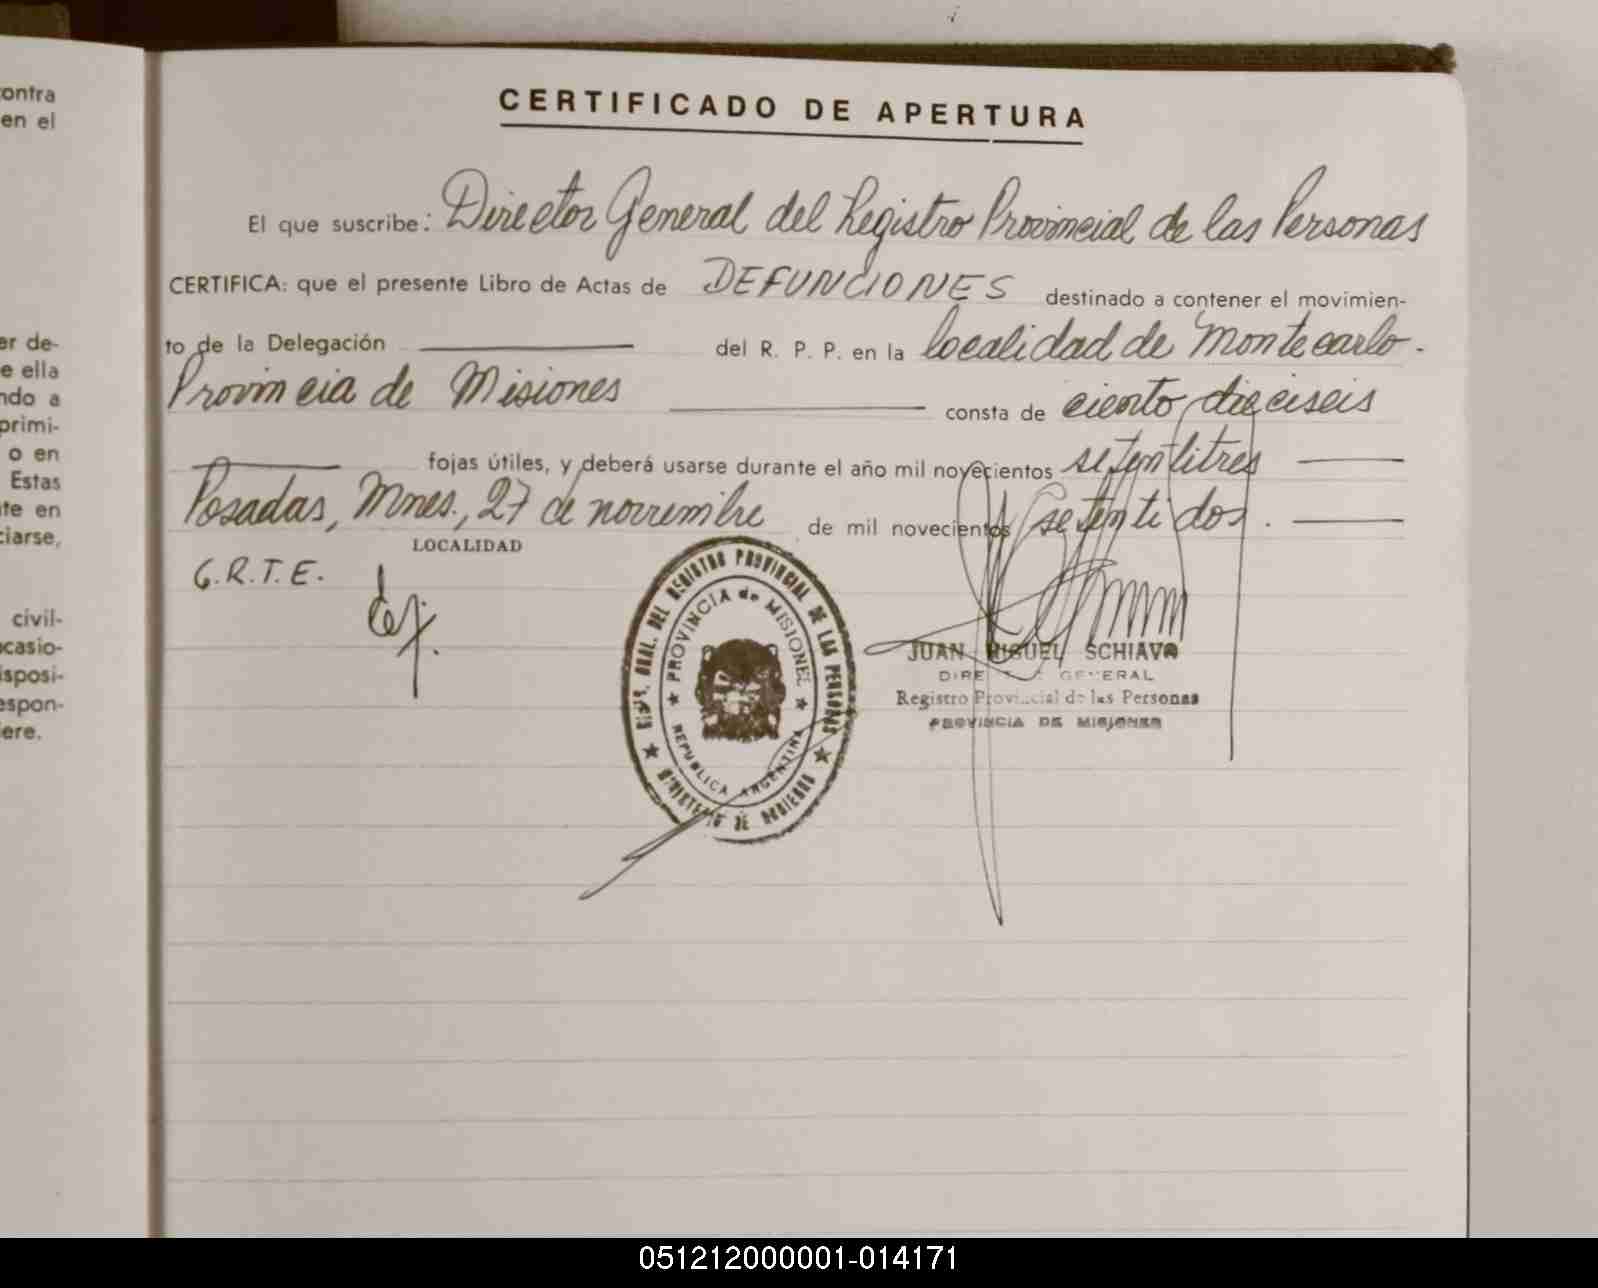 contra
en el
er de-
e ella
ndo a
primi-
o en
Estas
te en
ciarse,
civil-
casio-
isposi-
espon-
ere.
CERTIFICADO DE APERTURA
El que suscribe: Director General del Registro Provincial de las Personas
CERTIFICA: que el presente Libro de Actas de DEFUNCIONES destinado a contener el movimien-
to de la Delegación del R. P. P. en la localidad de Montecarlo.
Provincia de Misiones consta de ciento dieciseis
fojas útiles, y deberá usarse durante el año mil novecientos setentitres
Posadas, Mnes., 27 de noviembre de mil novecientos setentidos.
LOCALIDAD
G.R.T.E.
GRAL. DEL REGISTRO PROVINCIAL DE LAS PERSONAS
PROVINCIA de MISIONES
REPUBLICA ARGENTINA
MINISTERIO DE GOBIERNO
JUAN MIGUEL SCHIAVO
DIRECTOR GENERAL
Registro Provincial de las Personas
PROVINCIA DE MISIONES
051212000001-014171